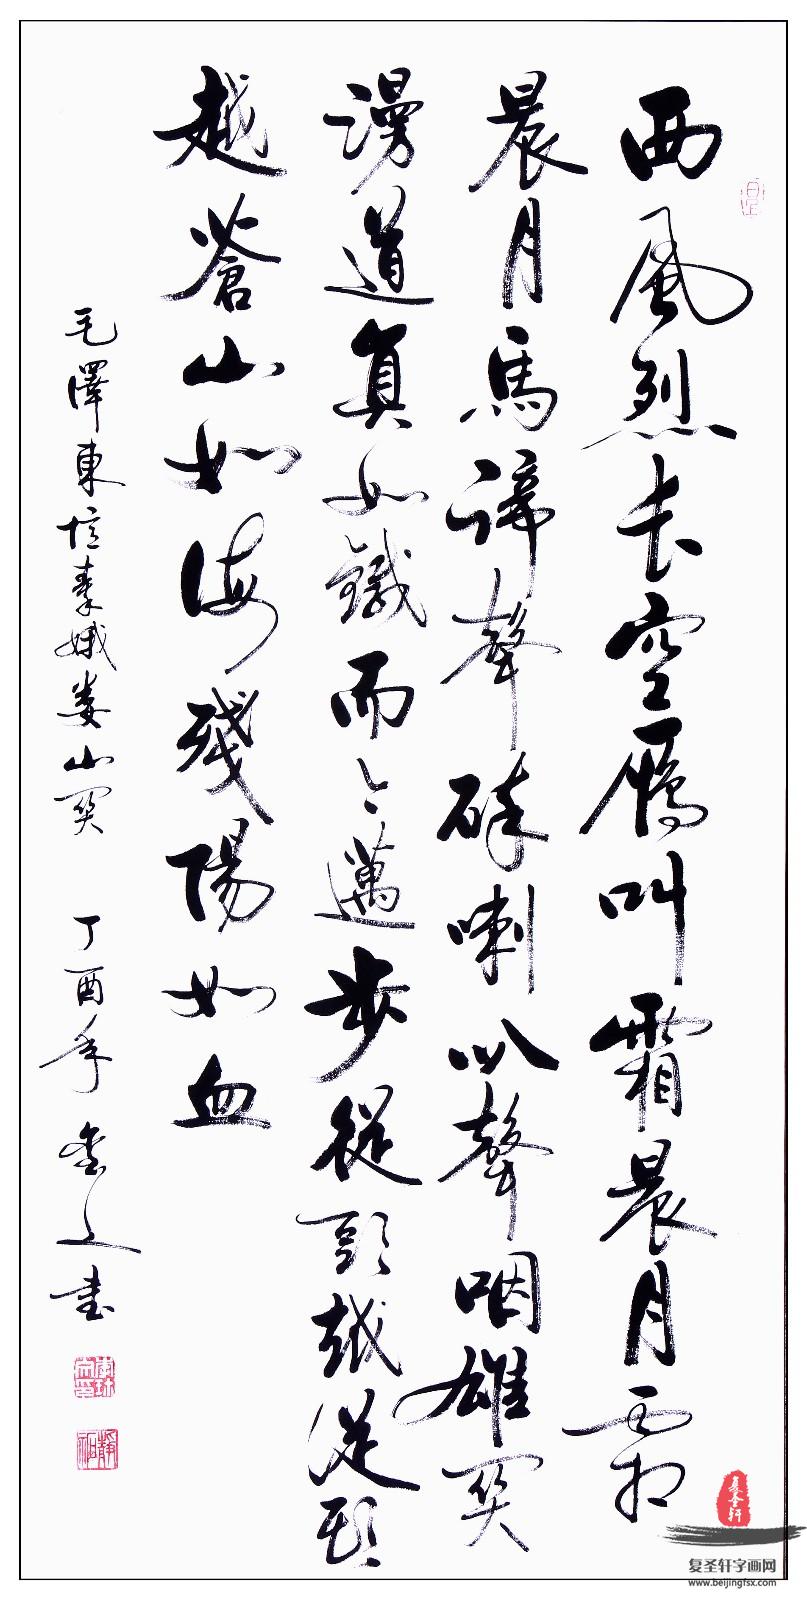 西風烈長空雁叫霜晨月霜
晨月馬蹄聲碎喇叭聲咽雄関
漫道真如鐵而今邁步從頭越從頭
越蒼山如海殘陽如血
毛澤東憶秦娥婁山関 丁酉年 書
复圣轩
复圣轩字画网
www.beijingfsx.com